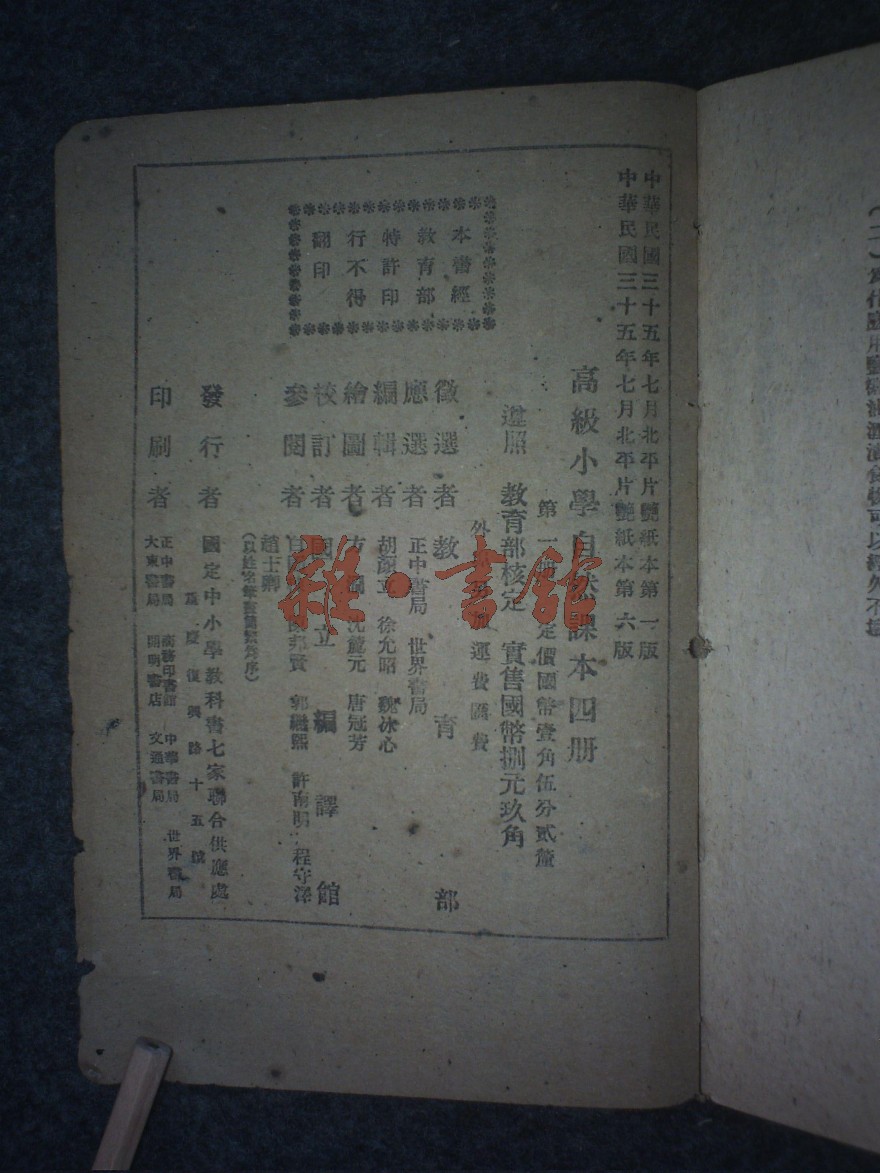 中華民國三十五年七月北平片艷紙本第一版
中華民國三十五年七月北平片艷紙本第六版
高級小學自然課本四册
第一册 定價國幣壹角伍分貳釐
遵照 教育部核定 實售國幣捌元玖角
外 運費匯費
本書經
教育部
特許印
行不得
翻印
徵選者 教育部
應選者 正中書局 世界書局
編輯者 胡顏立 徐允昭 魏冰心
繪圖者 沈麓元 唐冠芳
校訂者 國立編譯館
參閱者 郭繼熙 許南明 程守澤
趙士卿
(以姓名筆畫簡繁爲序)
發行者 國定中小學教科書七家聯合供應處
重慶復興路十五號
印刷者 正中書局 商務印書館 中華書局 世界書局
大東書局 開明書店 文通書局
雜·書館